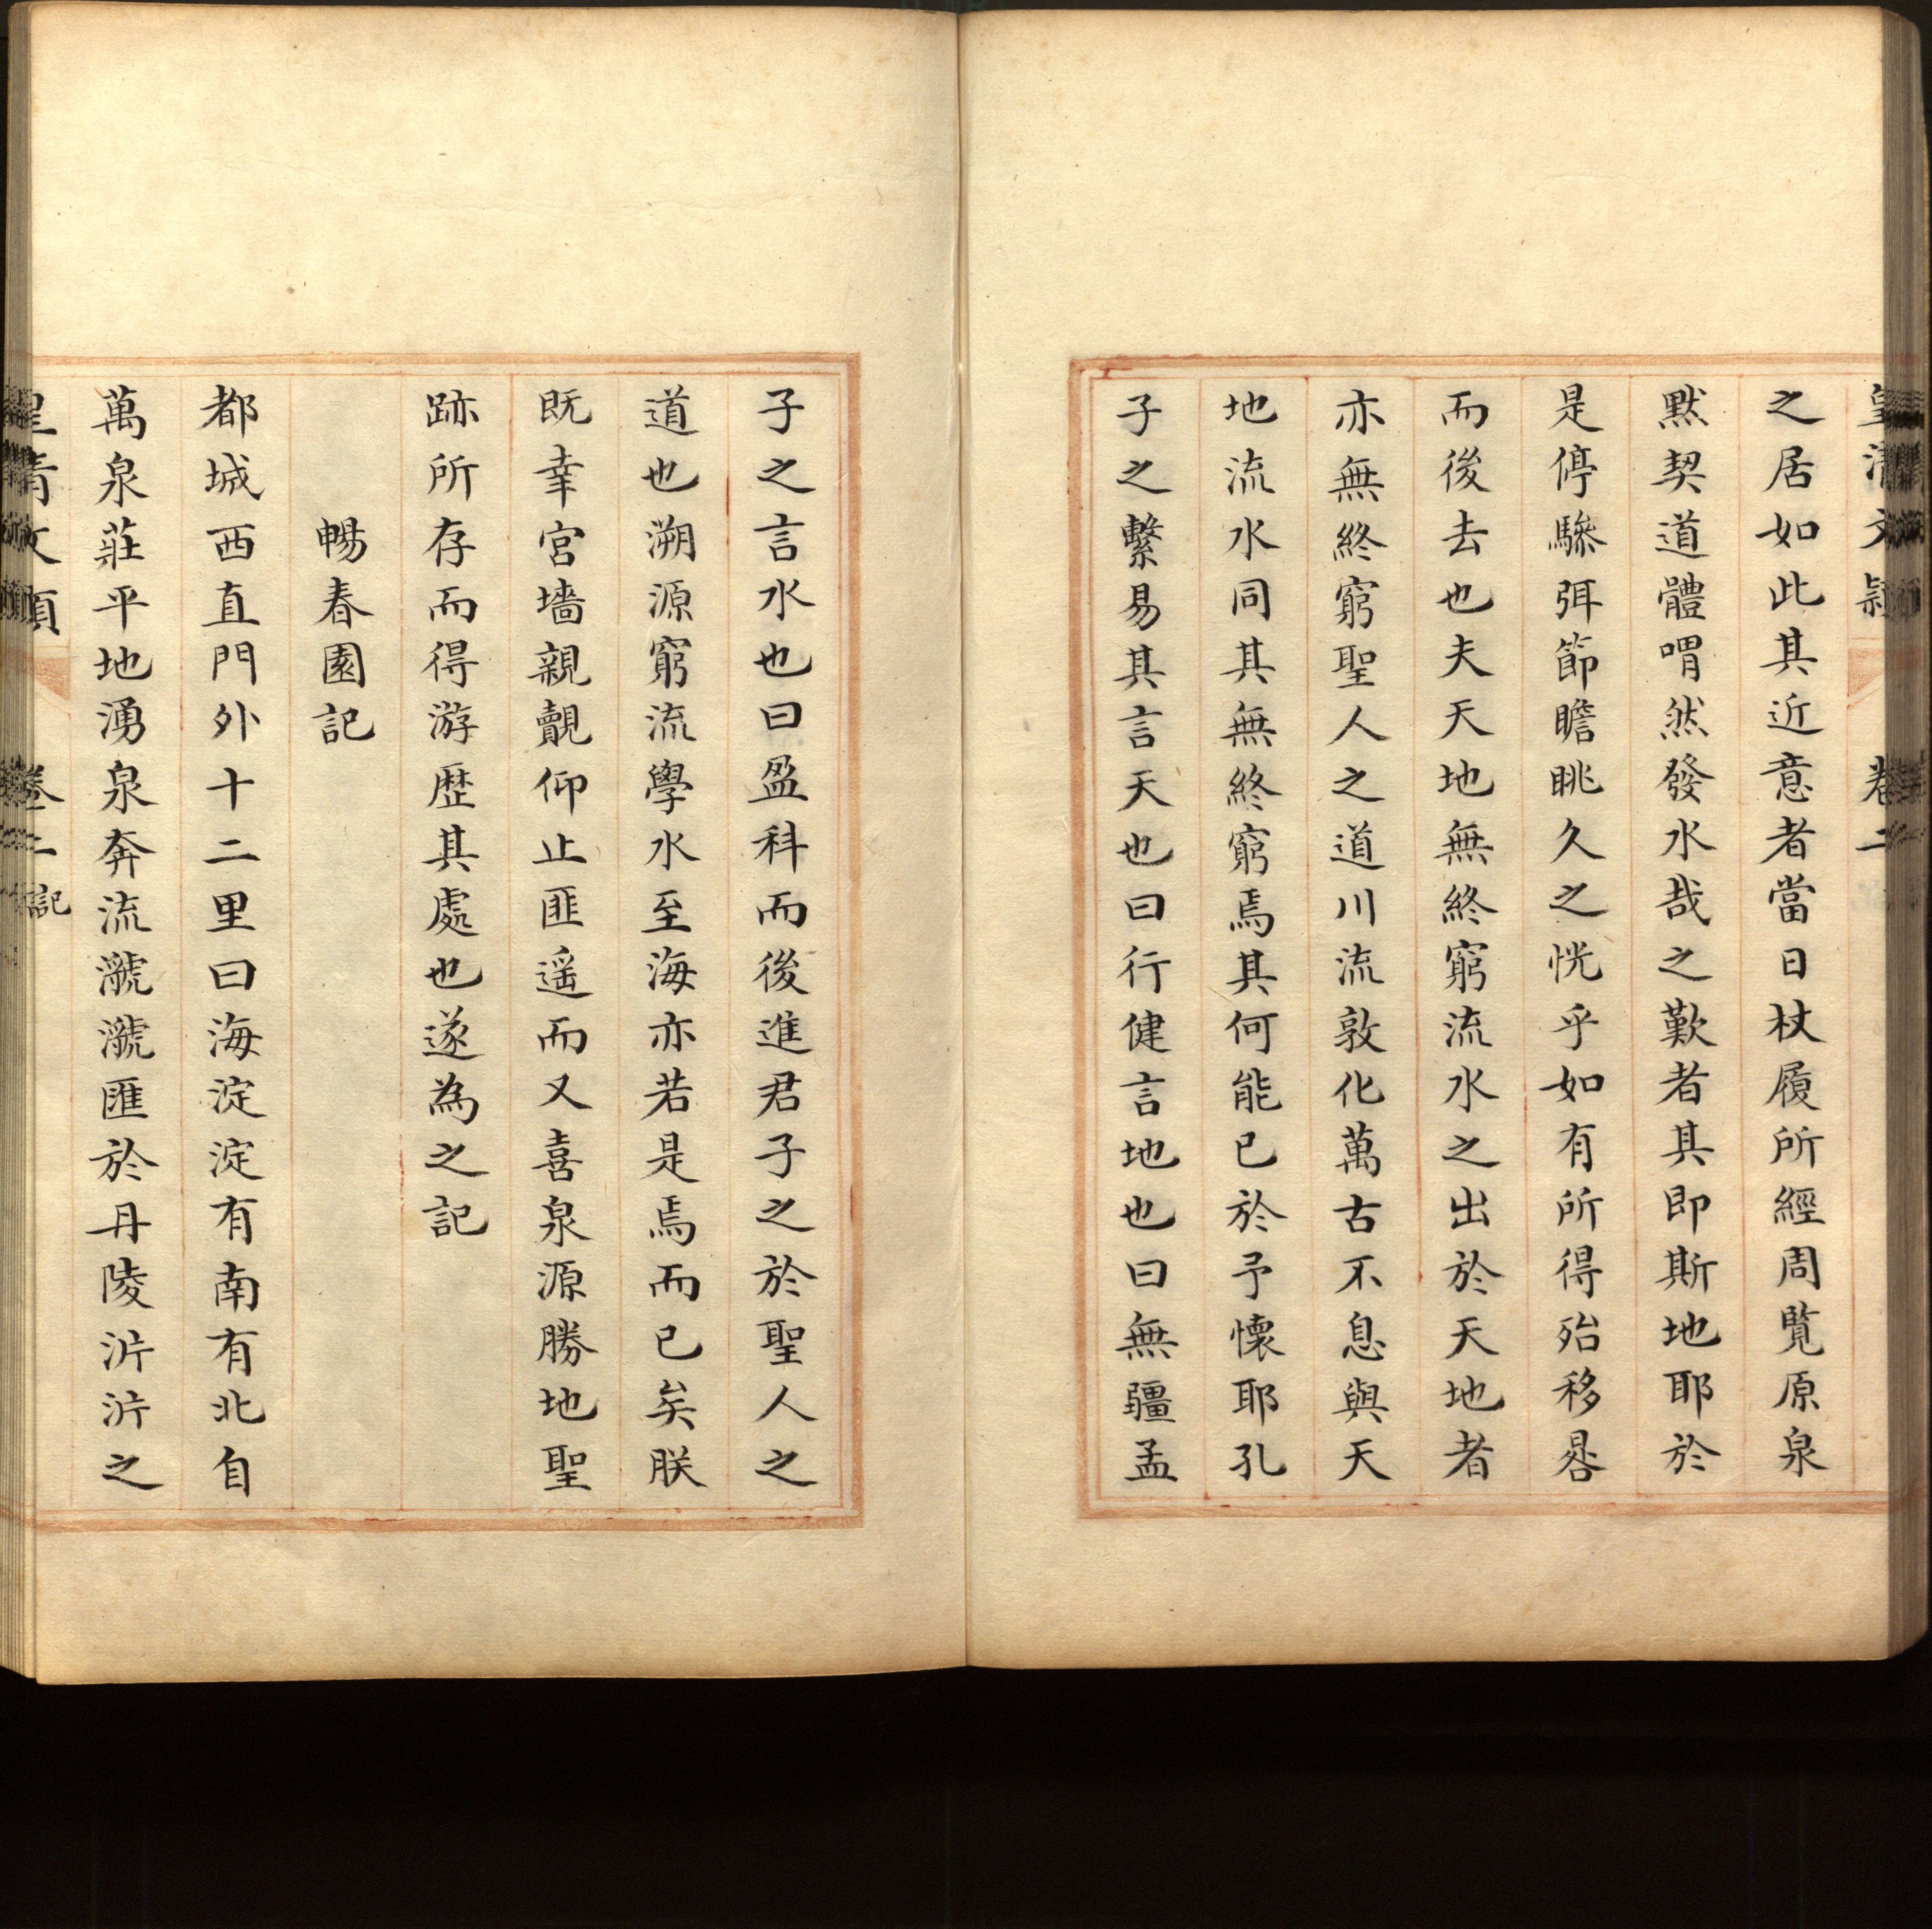 皇清文穎 卷二
之居如此其近意者當日杖履所經周覧原泉
默契道體喟然發水哉之歎者其即斯地耶於
是停驂弭節瞻眺久之恍乎如有所得殆移晷
而後去也夫天地無終窮流水之出於天地者
亦無終窮聖人之道川流敦化萬古不息與天
地流水同其無終窮焉其何能已於予懷耶孔
子之繫易其言天也曰行健言地也曰無疆孟
子之言水也曰盈科而後進君子之於聖人之
道也溯源窮流學水至海亦若是焉而已矣朕
既幸宮墻親覿仰止匪遥而又喜泉源勝地聖
跡所存而得游歴其處也遂為之記
暢春園記
都城西直門外十二里曰海淀淀有南有北自
萬泉莊平地湧泉奔流㶁㶁匯於丹陵沜沜之
皇清文穎 卷二 記